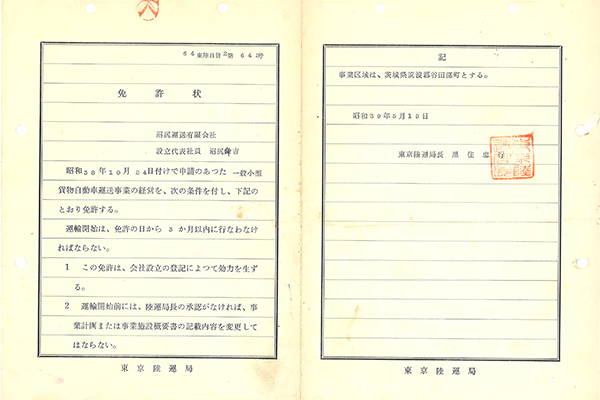 64東陸自貨2第 642号
免許状
沼尻運送有限会社
設立代表社員 沼尻
昭和38年10月24日付けで申請のあつた 一般小型
貨物自動車運送事業の経営を、次の条件を付し、下記の
とおり免許する。
運輸開始は、免許の日から 3 か月以内に行なわなけ
ればならない。
1 この免許は、会社設立の登記によつて効力を生ず
る。
2 運輸開始前には、陸運局長の承認がなければ、事
業計画または事業施設概要書の記載内容を変更して
はならない。
東京陸運局
記
事業区域は、茨城県筑波郡谷田部町とする。
昭和39年5月15日
東京陸運局長 黒住忠行
東京陸運局